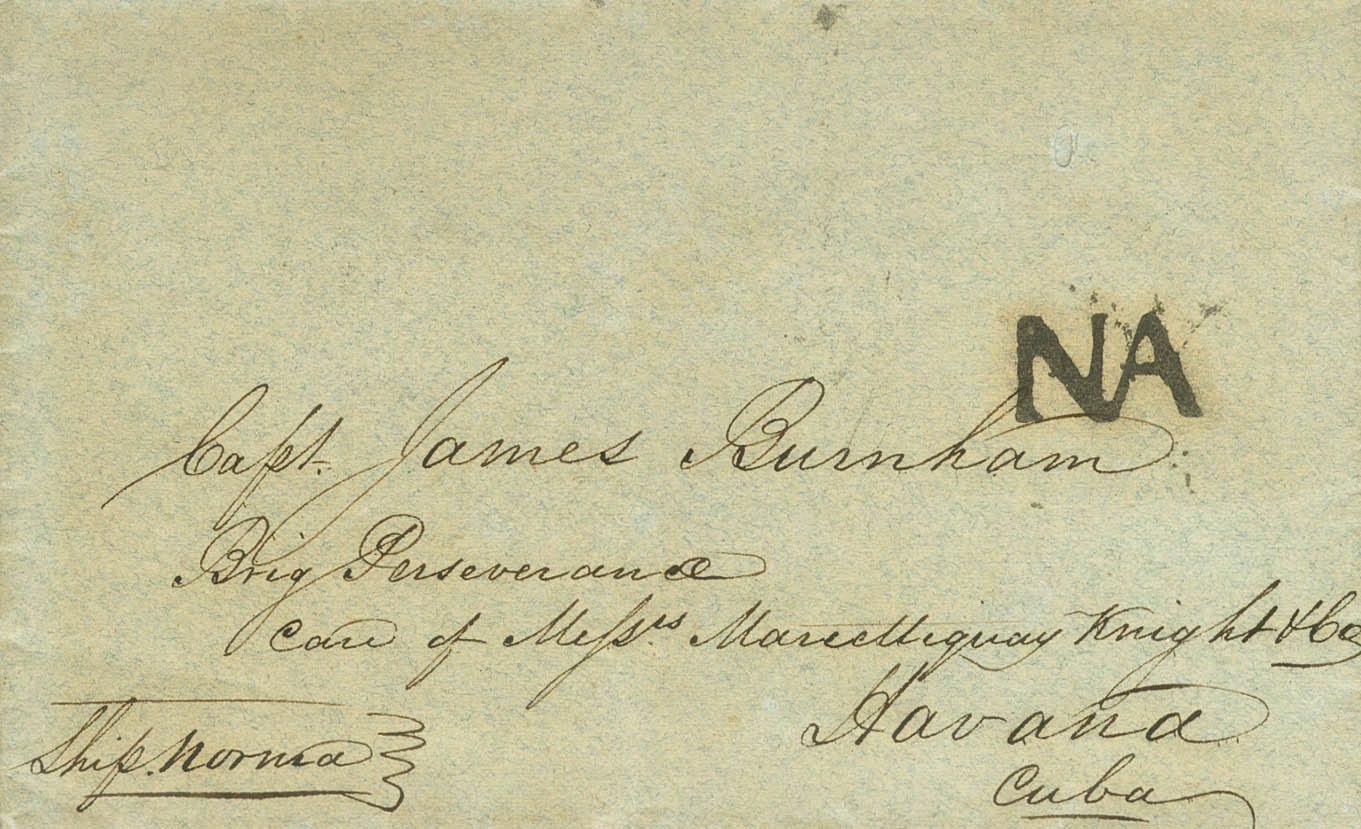 NA
Capt. James Burnham
Brig Perseverance
care of Messrs Knight & Co
Havana
Cuba
Ship. Norma